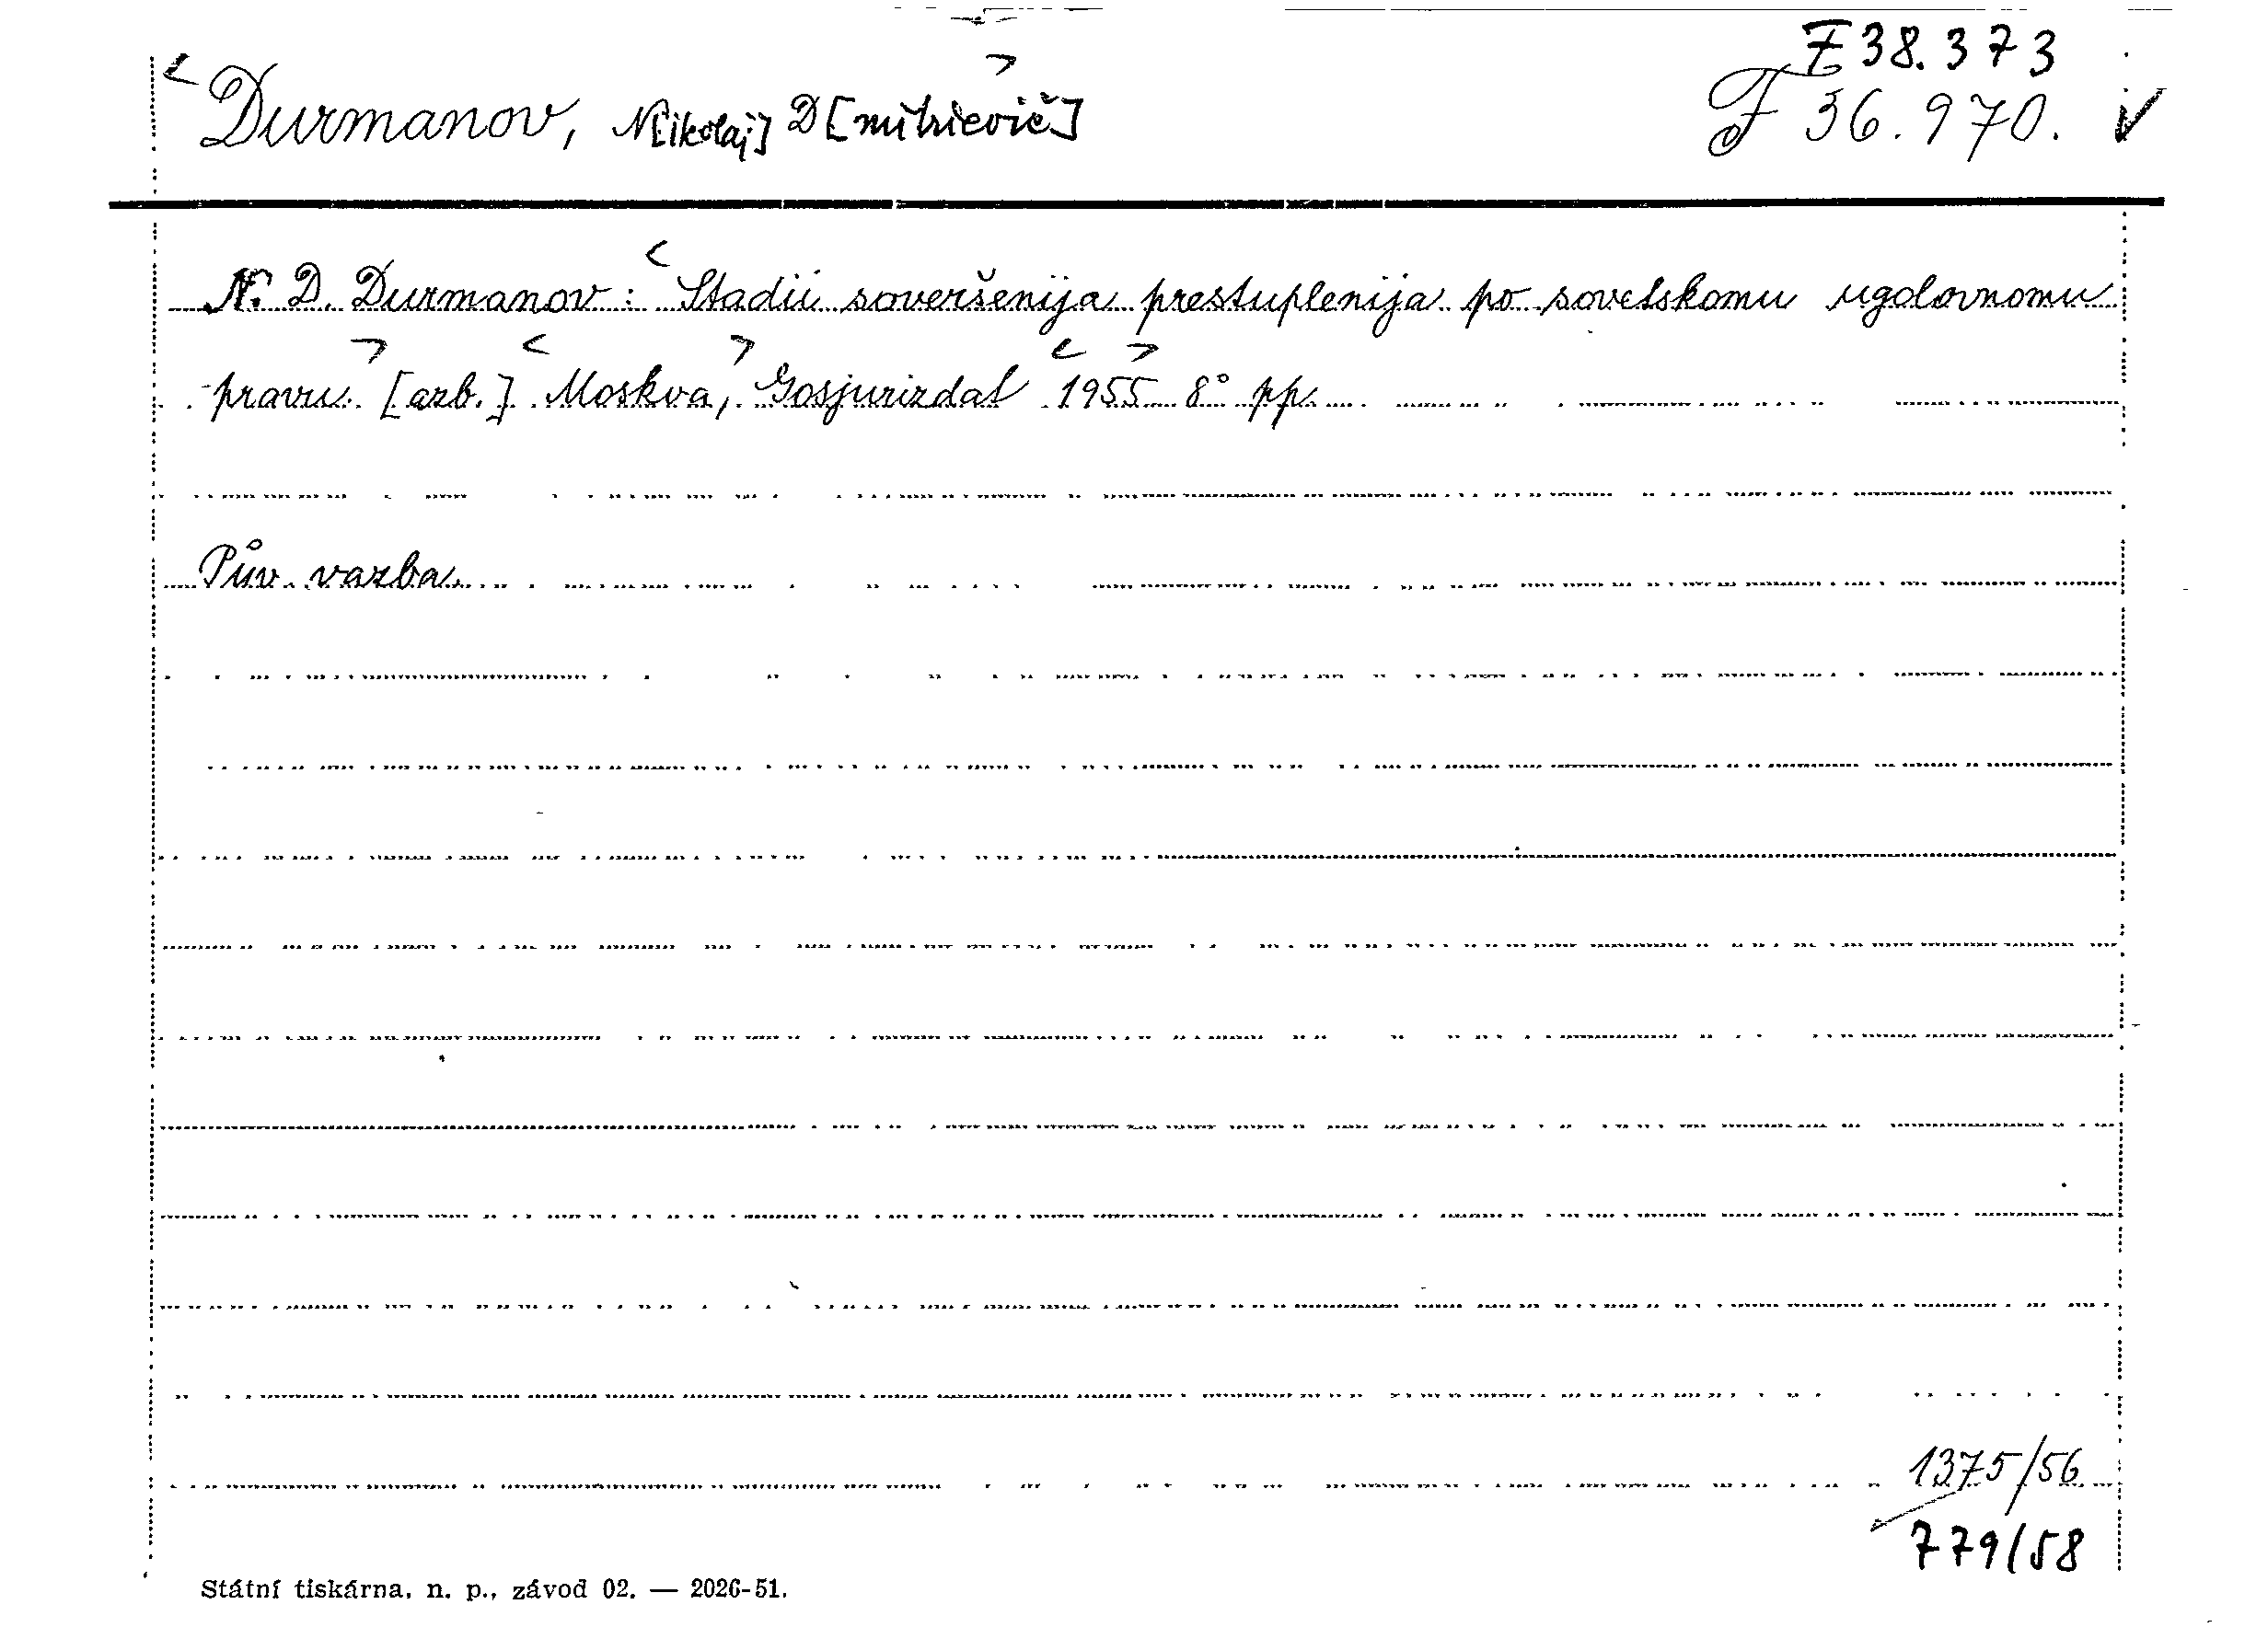 F 38.373
Durmanov, N[ikolaj] D[mitrievič]
F 36.970.
N. D. Durmanov: Stadii soveršenija prestuplenija po sovetskomu ugolovnomu
pravu [azb.] Moskva, Gosjurizdat 1955 8° pp
Pův. vazba
1375/56
779/58
Státní tiskárna, n. p., závod 02. — 2026-51.